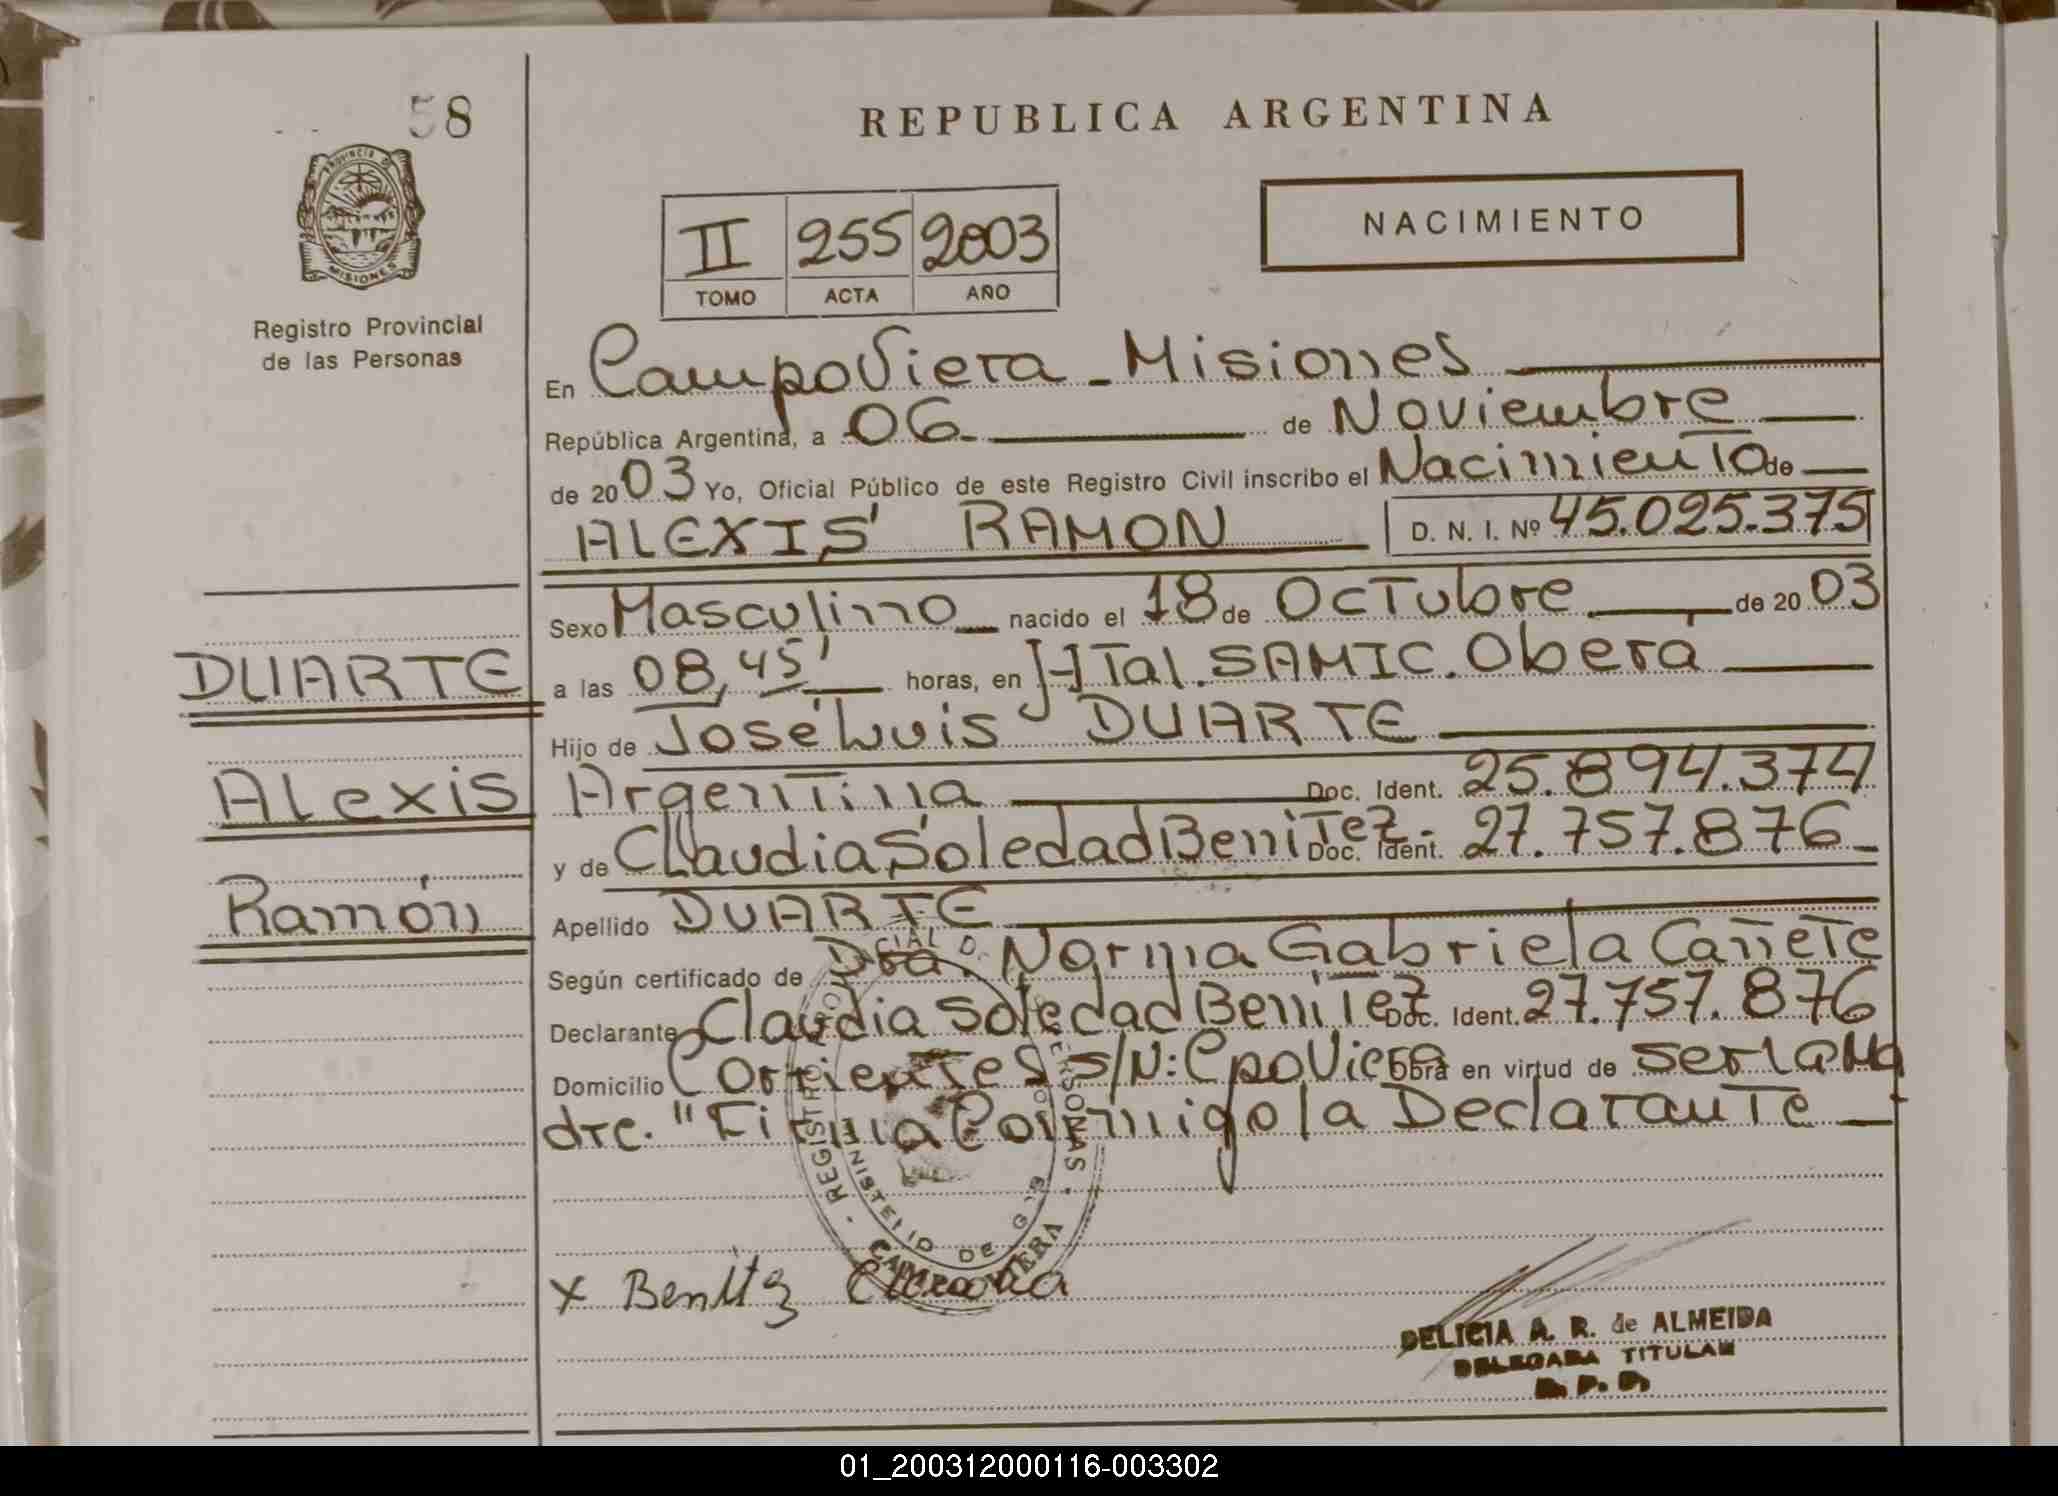 58
REPUBLICA ARGENTINA
PROVINCIA DE
MISIONES
Registro Provincial
de las Personas
II 255 2003
TOMO ACTA AÑO
NACIMIENTO
En CampoViera - Misiones
República Argentina, a 06 de Noviembre
de 2003 Yo, Oficial Público de este Registro Civil inscribo el Nacimiento de
ALEXIS RAMON D. N. I. Nº 45.025.375
Sexo Masculino nacido el 18 de Octubre de 2003
DUARTE
a las 08,45' horas, en HTal. SAMIC. Oberá
Hijo de José Luis DUARTE
Alexis
Argentina Doc. Ident. 25.894.374
y de Claudia Soledad Benitez - Doc. Ident. 27.757.876
Ramón
Apellido DUARTE
Según certificado de Dra. Norma Gabriela Cañete
Declarante Claudia Soledad Benitez Doc. Ident. 27.757.876
Domicilio Corrientes s/N: CpoViera Obra en virtud de ser la Ma
dre. "Firma Conmigo la Declarante
REGISTRO PERSONAS
MINISTERIO DE
CAMPO VIERA
x Benitez Claudia
DELICIA A. R. de ALMEIDA
DELEGADA TITULAR
R. P. P.
01_200312000116-003302